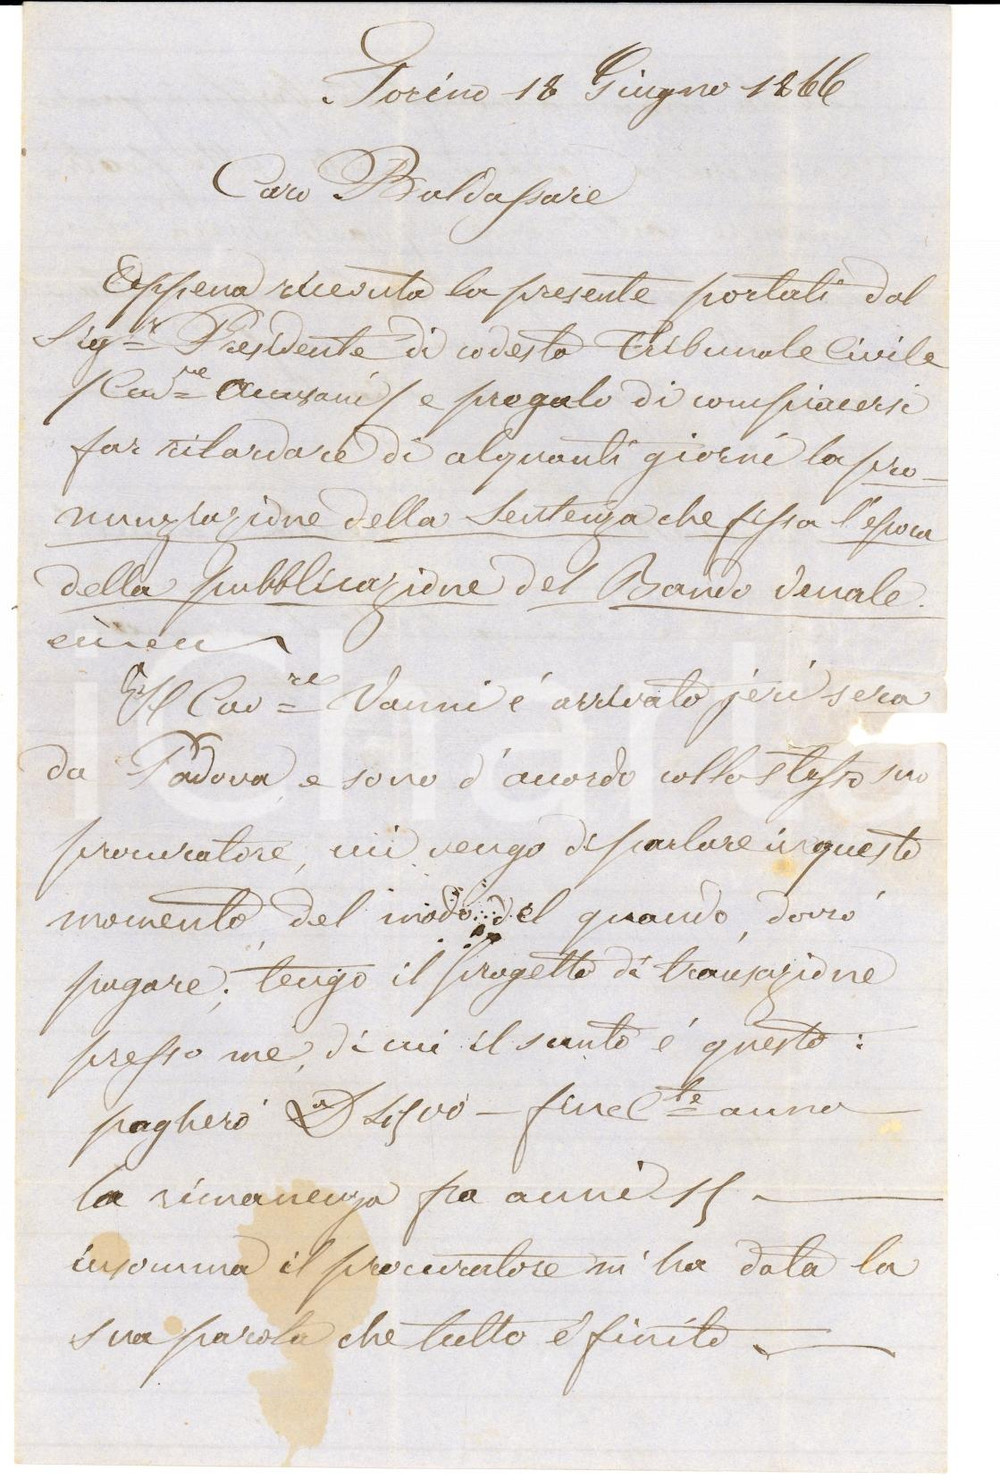 Torino 18 Giugno 1866
Caro Baldassare
Appena ricevuta la presente portati dal
Sig.r Presidente di codesto Tribunale Civile
/Cav.re e pregalo di compiacersi
far ritardare di alquanti giorni la pro-
nunziazione della Sentenza che fissa l'epoca
della pubblicazione del Bando Venale.
Il Cav.re Vanni é arrivato jeri sera
da Padova, e sono d'accordo collo stesso suo
procuratore, cui vengo di parlare in questo
momento del modo del quando dovró
pagare; tengo il progetto di transazione
presso me, di cui il sunto é questo:
pagheró 1500 - fine C.te anno
la rimanenza fra anni 15
insomma il procuratore m'ha data la
sua parola che tutto é finito.
iCharta